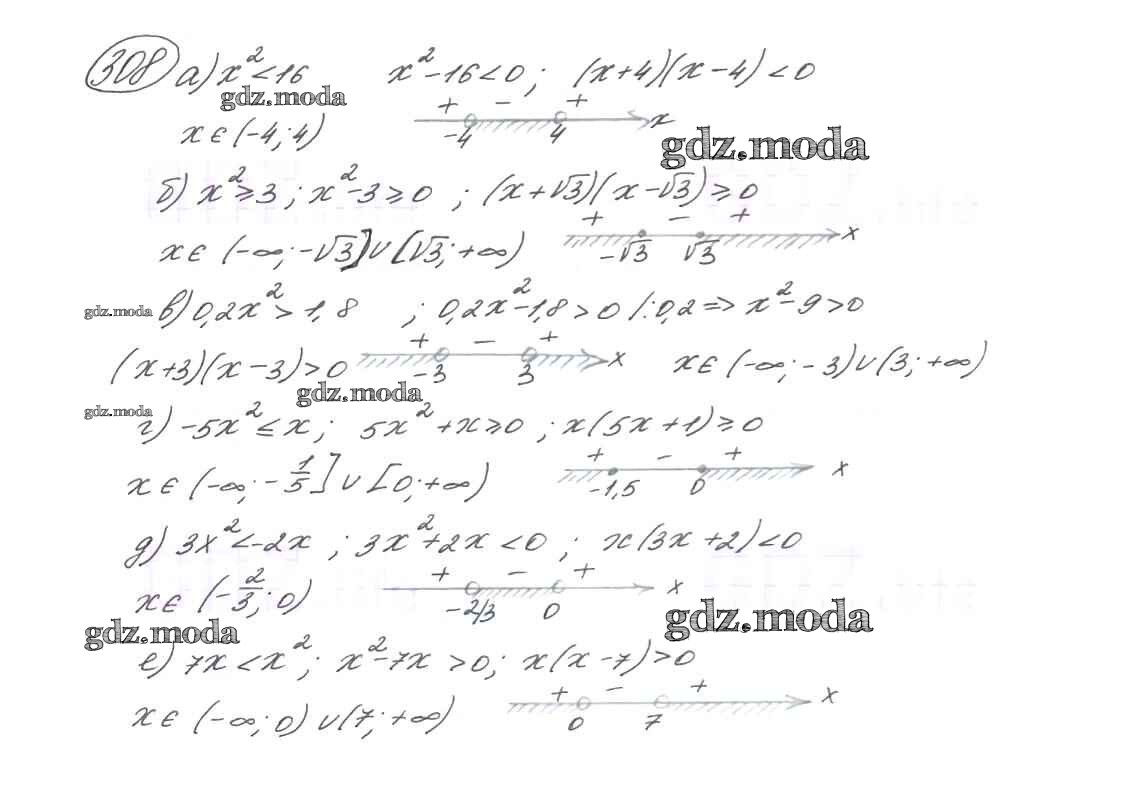 308 а) x² < 16 x² - 16 < 0 ; (x+4)(x-4) < 0
gdz.moda
+ - +
x ∈ (-4; 4) -4 4 x
gdz.moda
б) x² ≥ 3 ; x² - 3 ≥ 0 ; (x+√3)(x-√3) ≥ 0
+ - +
x ∈ (-∞; -√3] ∪ [√3; +∞) -√3 √3 x
gdz.moda в) 0,2x² > 1,8 ; 0,2x² - 1,8 > 0 /:0,2 => x² - 9 > 0
+ - +
(x+3)(x-3) > 0 -3 3 x x ∈ (-∞; -3) ∪ (3; +∞)
gdz.moda
gdz.moda
г) -5x² ≤ x ; 5x² + x ≥ 0 ; x(5x+1) ≥ 0
+ - +
x ∈ (-∞; -1/5] ∪ [0; +∞) -1,5 0 x
д) 3x² < -2x ; 3x² + 2x < 0 ; x(3x+2) < 0
+ - +
x ∈ (-2/3; 0) -2/3 0 x
gdz.moda
gdz.moda
е) 7x < x² ; x² - 7x > 0 ; x(x-7) > 0
+ - +
x ∈ (-∞; 0) ∪ (7; +∞) 0 7 x